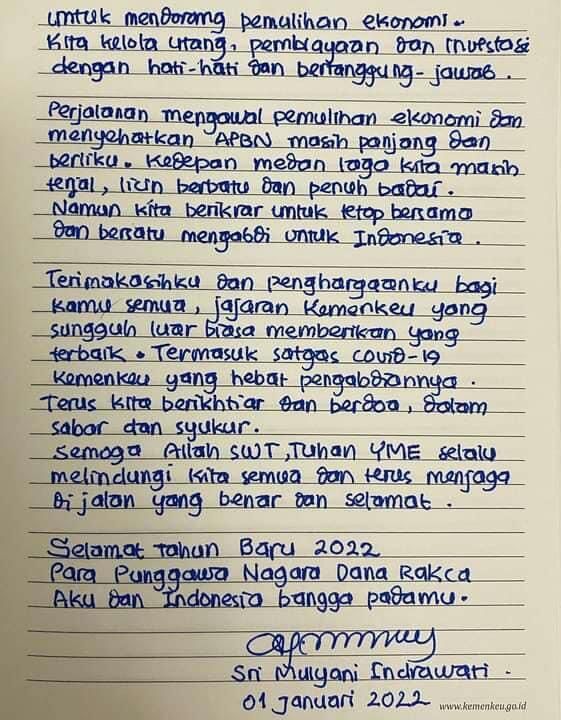 untuk mendorong pemulihan ekonomi.
Kita kelola utang, pembiayaan dan investasi
dengan hati-hati dan bertanggung-jawab.
Perjalanan mengawal pemulihan ekonomi dan
menyehatkan APBN masih panjang dan
berliku. Kedepan medan laga kita masih
terjal, licin berbatu dan penuh badai.
Namun kita berikrar untuk tetap bersama
dan bersatu mengabdi untuk Indonesia.
Terimakasihku dan penghargaanku bagi
kamu semua, jajaran Kemenkeu yang
sungguh luar biasa memberikan yang
terbaik. Termasuk satgas covid-19
Kemenkeu yang hebat pengabdiannya.
Terus kita berikhtiar dan berdoa, dalam
sabar dan syukur.
Semoga Allah SWT, Tuhan YME selalu
melindungi kita semua dan terus menjaga
di jalan yang benar dan selamat.
Selamat Tahun Baru 2022
Para Punggawa Nagara Dana Rakca
Aku dan Indonesia bangga padamu.
Sri Mulyani Indrawati.
01 Januari 2022
www.kemenkeu.go.id